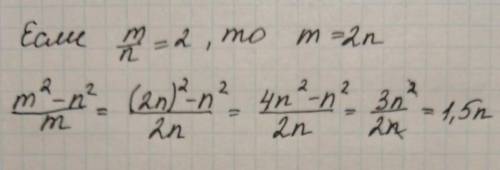 Если m/n = 2, то m = 2n
(m² – n²)/m = ((2n)² – n²)/2n = (4n² – n²)/2n = 3n²/2n = 1,5n